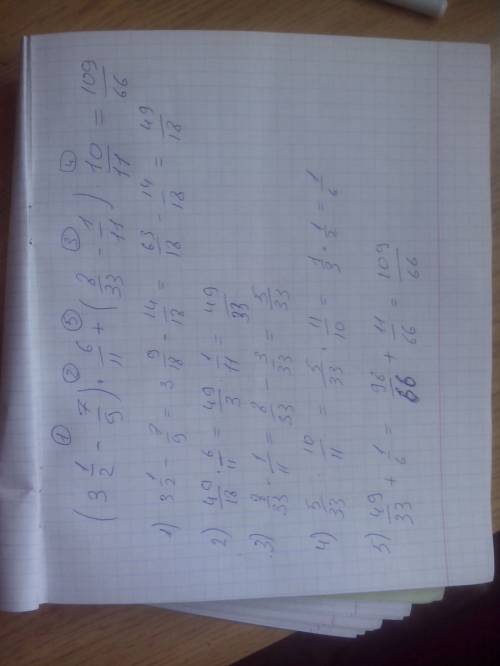 ① ② ⑤ ③ ④
(3 1/2 - 7/9) · 6/11 + (8/33 - 1/11) : 10/11 = 109/66
1) 3 1/2 - 7/9 = 3 9/18 - 14/18 = 63/18 - 14/18 = 49/18
2) 49/18 · 6/11 = 49/3 · 1/11 = 49/33
3) 8/33 - 1/11 = 8/33 - 3/33 = 5/33
4) 5/33 : 10/11 = 5/33 · 11/10 = 1/3 · 1/2 = 1/6
5) 49/33 + 1/6 = 98/66 + 11/66 = 109/66